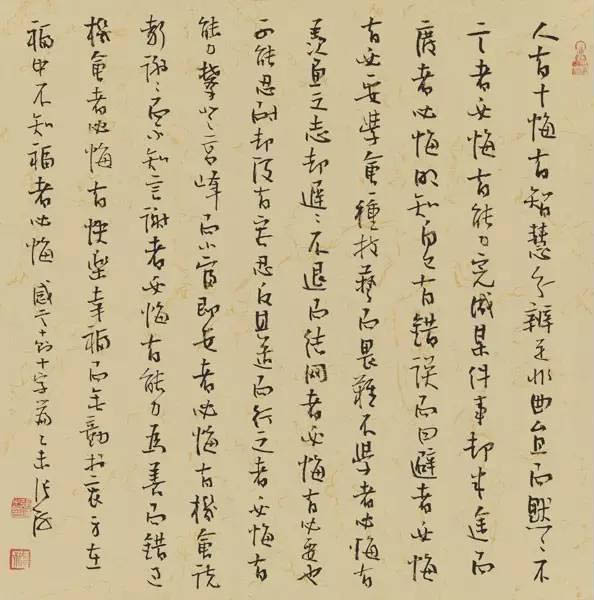 人有十悔有智慧分辨是非曲直而默々不
言者必悔有能力完成某件事却半途而
废者必悔明知自己有错误而回避者必悔
有必要学会一种技艺而畏难不学者必悔有
羡鱼之志却迟々不退而结网者必悔有必要也
可能忍耐却没有忍反且逆而行之者必悔有
能力攀上高峰而小富即安者必悔有机会说
声谢々而不知言谢者必悔有能力为善而错过
机会者必悔有快乐幸福而无动于衷身在
福中不知福者必悔 十字篇 乙未